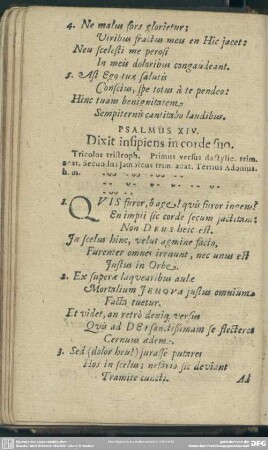 4. Ne malus fors glorietur;
Viribus fractus meu en Hic jacet:
Neu scelesti me perosi
In meis doloribus congaudeant.
5. Ast Ego tuæ salutis
Conscius, spe totus à te pendeo:
Hinc tuam benignitatem
Sempiternis cantitabo laudibus.
PSALMUS XIV.
Dixit insipiens in corde suo.
Tricolos tristroph. Primus versus dactylic. trim.
acat. Secundus Jambicus trim. acat. Tertius Adonius.
1. QVIS furor, ô age! quis furor ingens!
En impii sic corde secum jactitant:
Non DEUS heic est.
In scelus hinc, velut agmine facto,
Furenter omnes irruunt, nec unus est
Justus in Orbe.
2. Ex supera laqvearibus aulæ
Mortalium JEHOVA justus omnium
Facta tuetur.
Et videt, an retrò deniq; versus
Quis ad DEI sanctissimam se flectere
Cernuus ædem.
3. Sed (dolor heu!) jurasse putares
Hos in scelus; nefario sic deviant
Tramite cuncti.
Ad